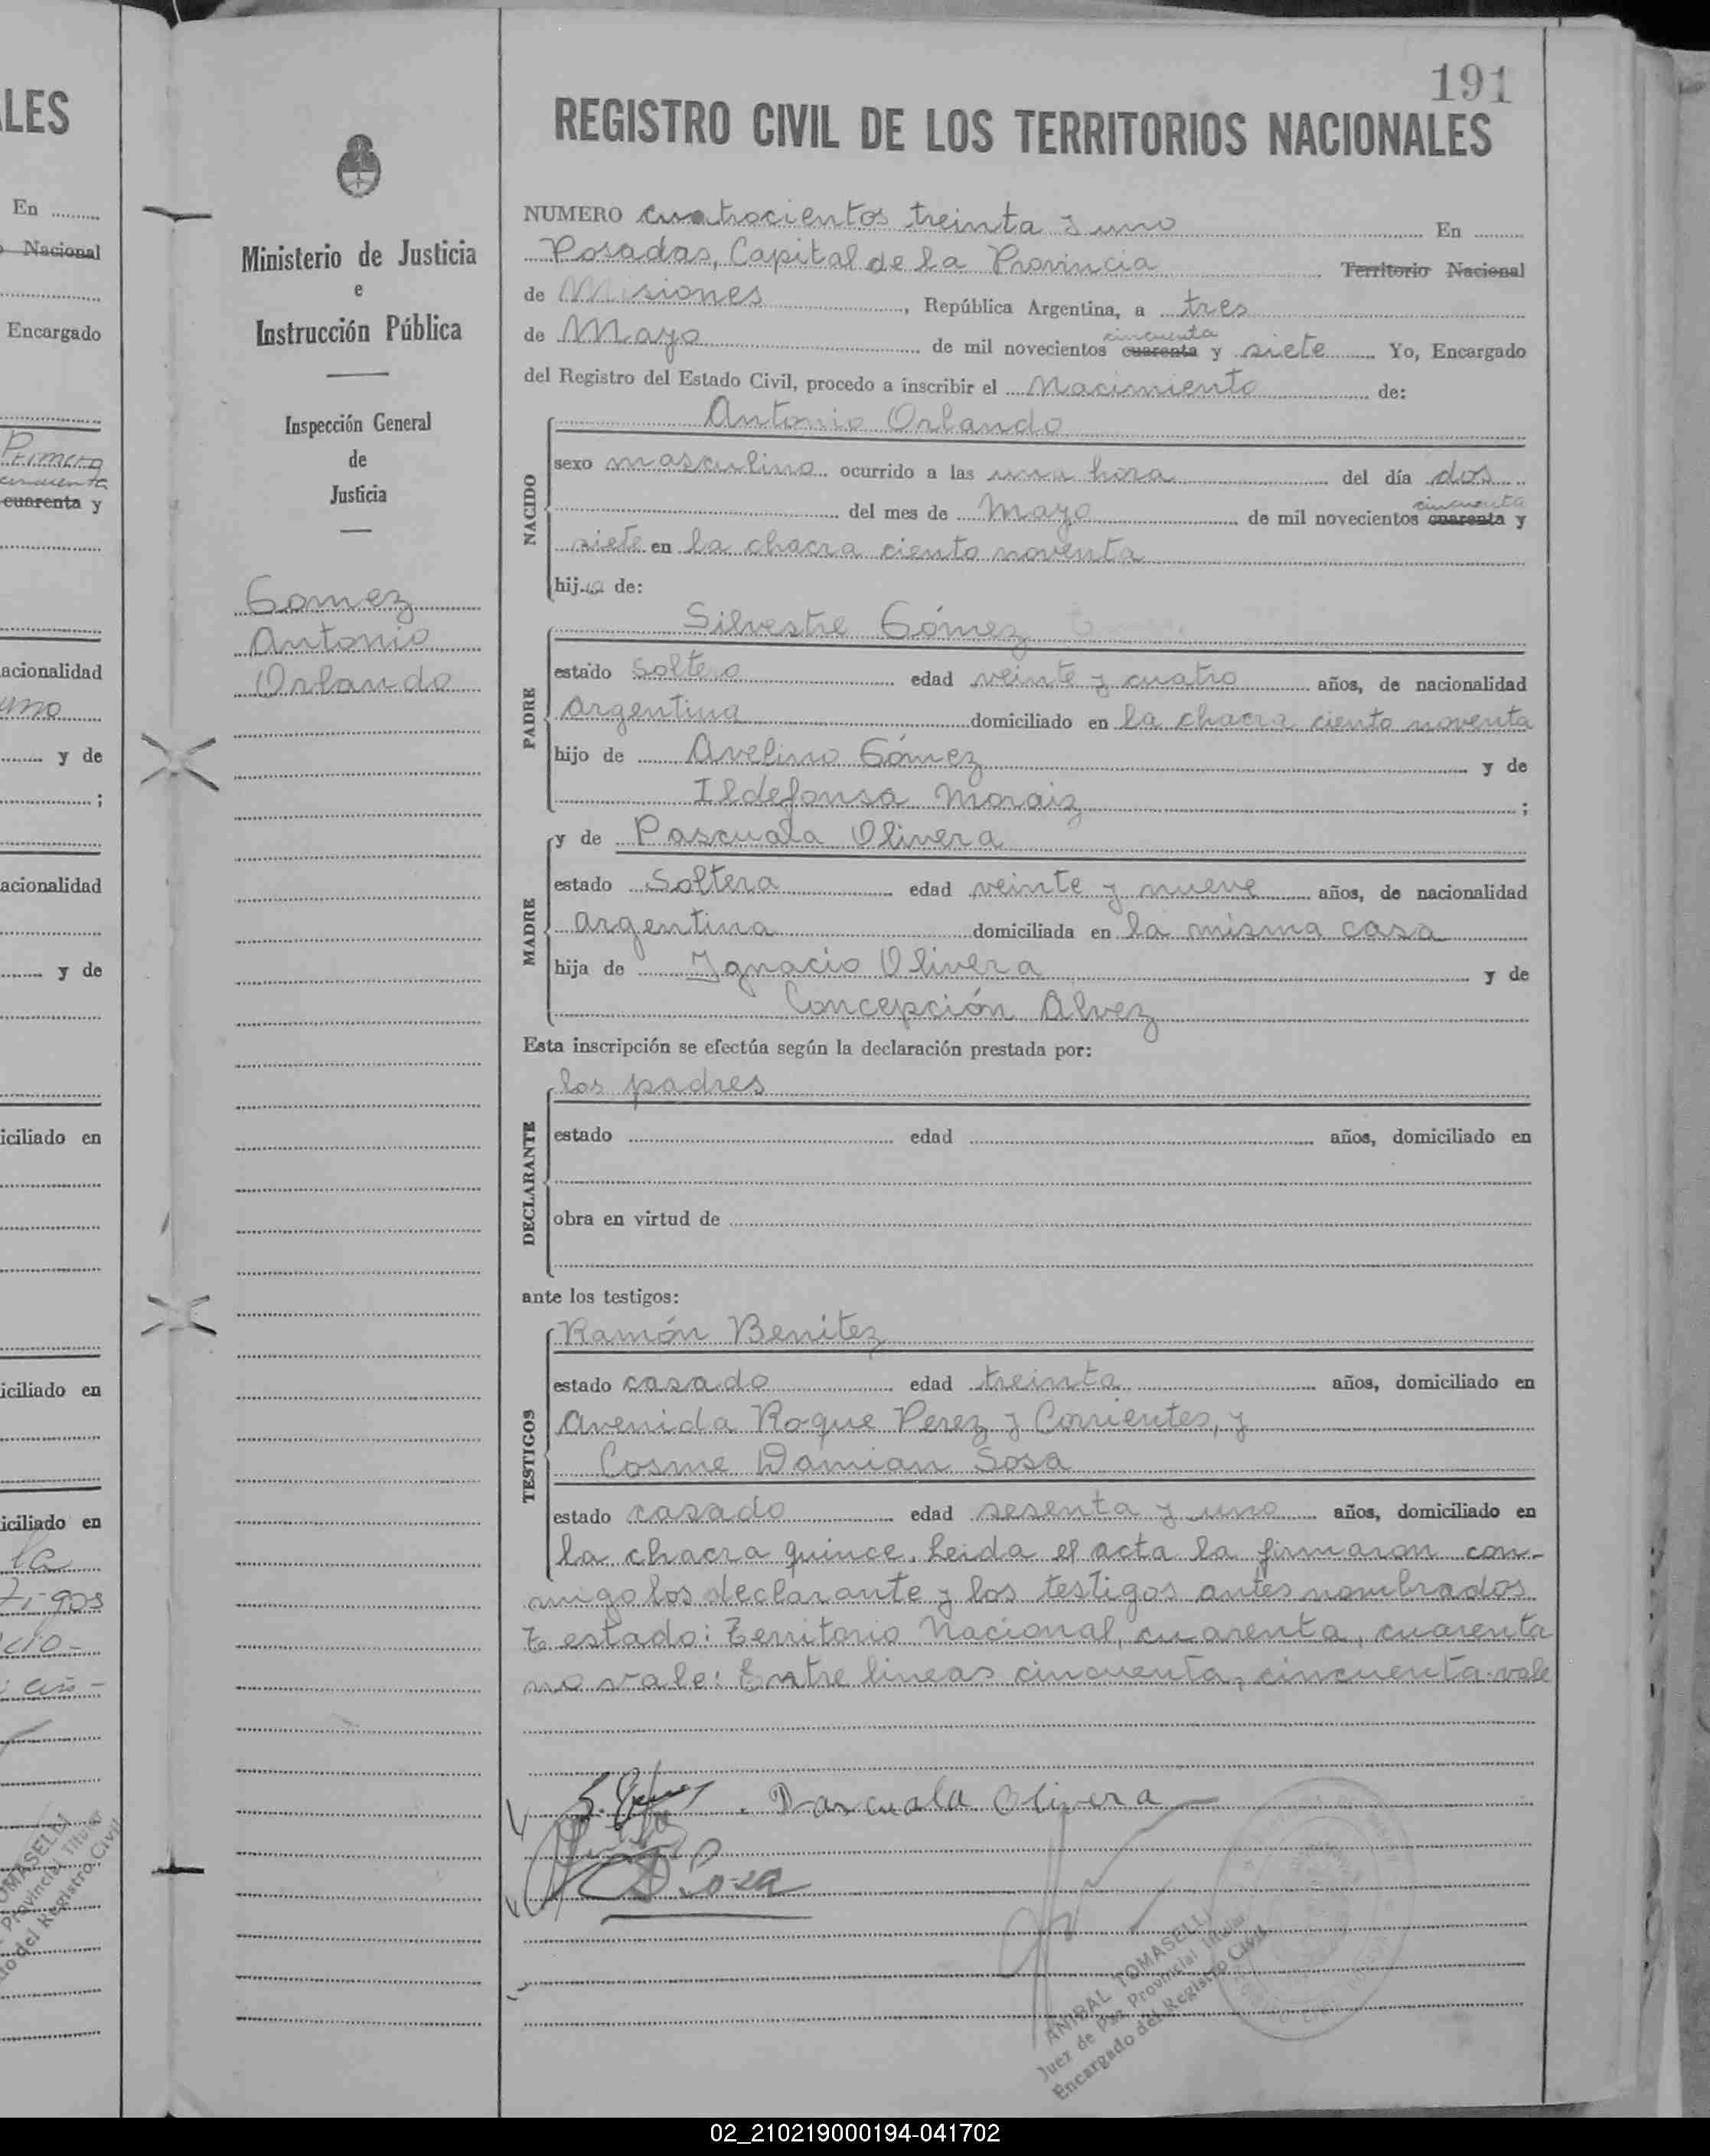 LES
En
Nacional
Encargado
Primero
cincuenta
cuarenta y
acionalidad
uno
y de
;
acionalidad
y de
iciliado en
iciliado en
iciliado en
la
tigos
cio-
OMASELLI
Provincial Titular
do del Registro Civil
Ministerio de Justicia
e
Instrucción Pública
Inspección General
de
Justicia
Gomez
Antonio
Orlando
191
REGISTRO CIVIL DE LOS TERRITORIOS NACIONALES
NUMERO cuatrocientos treinta y uno En
Posadas, Capital de la Provincia Territorio Nacional
de Misiones, República Argentina, a tres
cincuenta
de Mayo de mil novecientos cuarenta y siete Yo, Encargado
del Registro del Estado Civil, procedo a inscribir el Nacimiento de:
Antonio Orlando
NACIDO
sexo masculino ocurrido a las una hora del día dos
cincuenta
del mes de Mayo de mil novecientos cuarenta y
siete en la chacra ciento noventa
hijo de:
Silvestre Gómez
PADRE
estado soltero edad veinte y cuatro años, de nacionalidad
argentina domiciliado en la chacra ciento noventa
hijo de Avelino Gómez y de
Ildefonsa Moraiz ;
y de Pascuala Olivera
MADRE
estado Soltera edad veinte y nueve años, de nacionalidad
argentina domiciliada en la misma casa
hija de Ignacio Olivera y de
Concepción Alvez
Esta inscripción se efectúa según la declaración prestada por:
los padres
DECLARANTE
estado edad años, domiciliado en
obra en virtud de
ante los testigos:
Ramón Benitez
TESTIGOS
estado casado edad treinta años, domiciliado en
Avenida Roque Perez y Corrientes, y
Cosme Damian Sosa
estado casado edad sesenta y uno años, domiciliado en
la chacra quince. Leida el acta la firmaron con-
migo los declarante y los testigos antes nombrados
T estado: Territorio Nacional, cuarenta, cuarenta
no vale: Entre lineas cincuenta, cincuenta-vale
Pascuala Olivera
D Sosa
ANIBAL TOMASELLI
Juez de Paz Provincial Titular
Encargado del Registro Civil
02_210219000194-041702